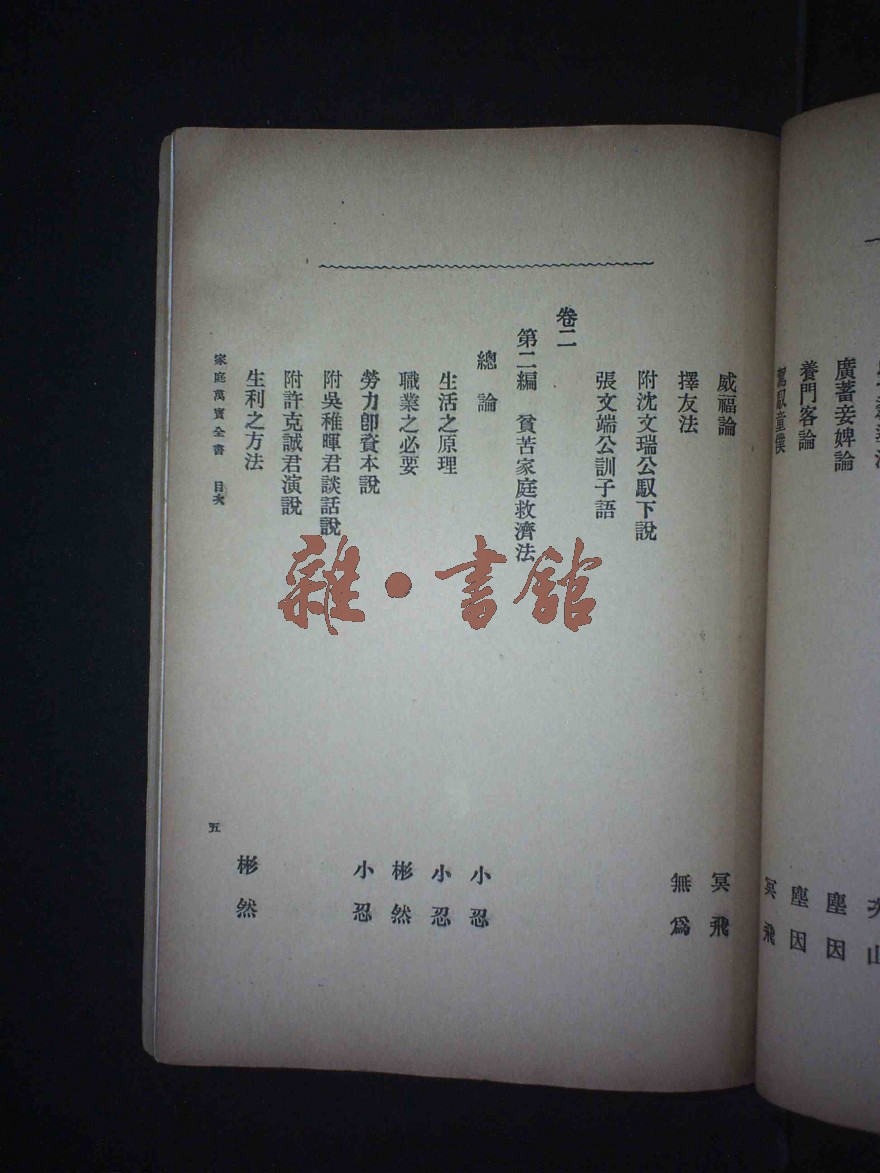 廣蓄妾婢論 塵因
養門客論 塵因
馭童僕 冥飛
威福論 冥飛
擇友法 無爲
附沈文瑞公馭下說
張文端公訓子語
卷二
第二編 貧苦家庭救濟法
總論 小忍
生活之原理 小忍
職業之必要 彬然
勞力卽資本說 小忍
附吳稚暉君談話說
附許克誠君演說
生利之方法 彬然
家庭萬寶全書 目次
五
雜·書館